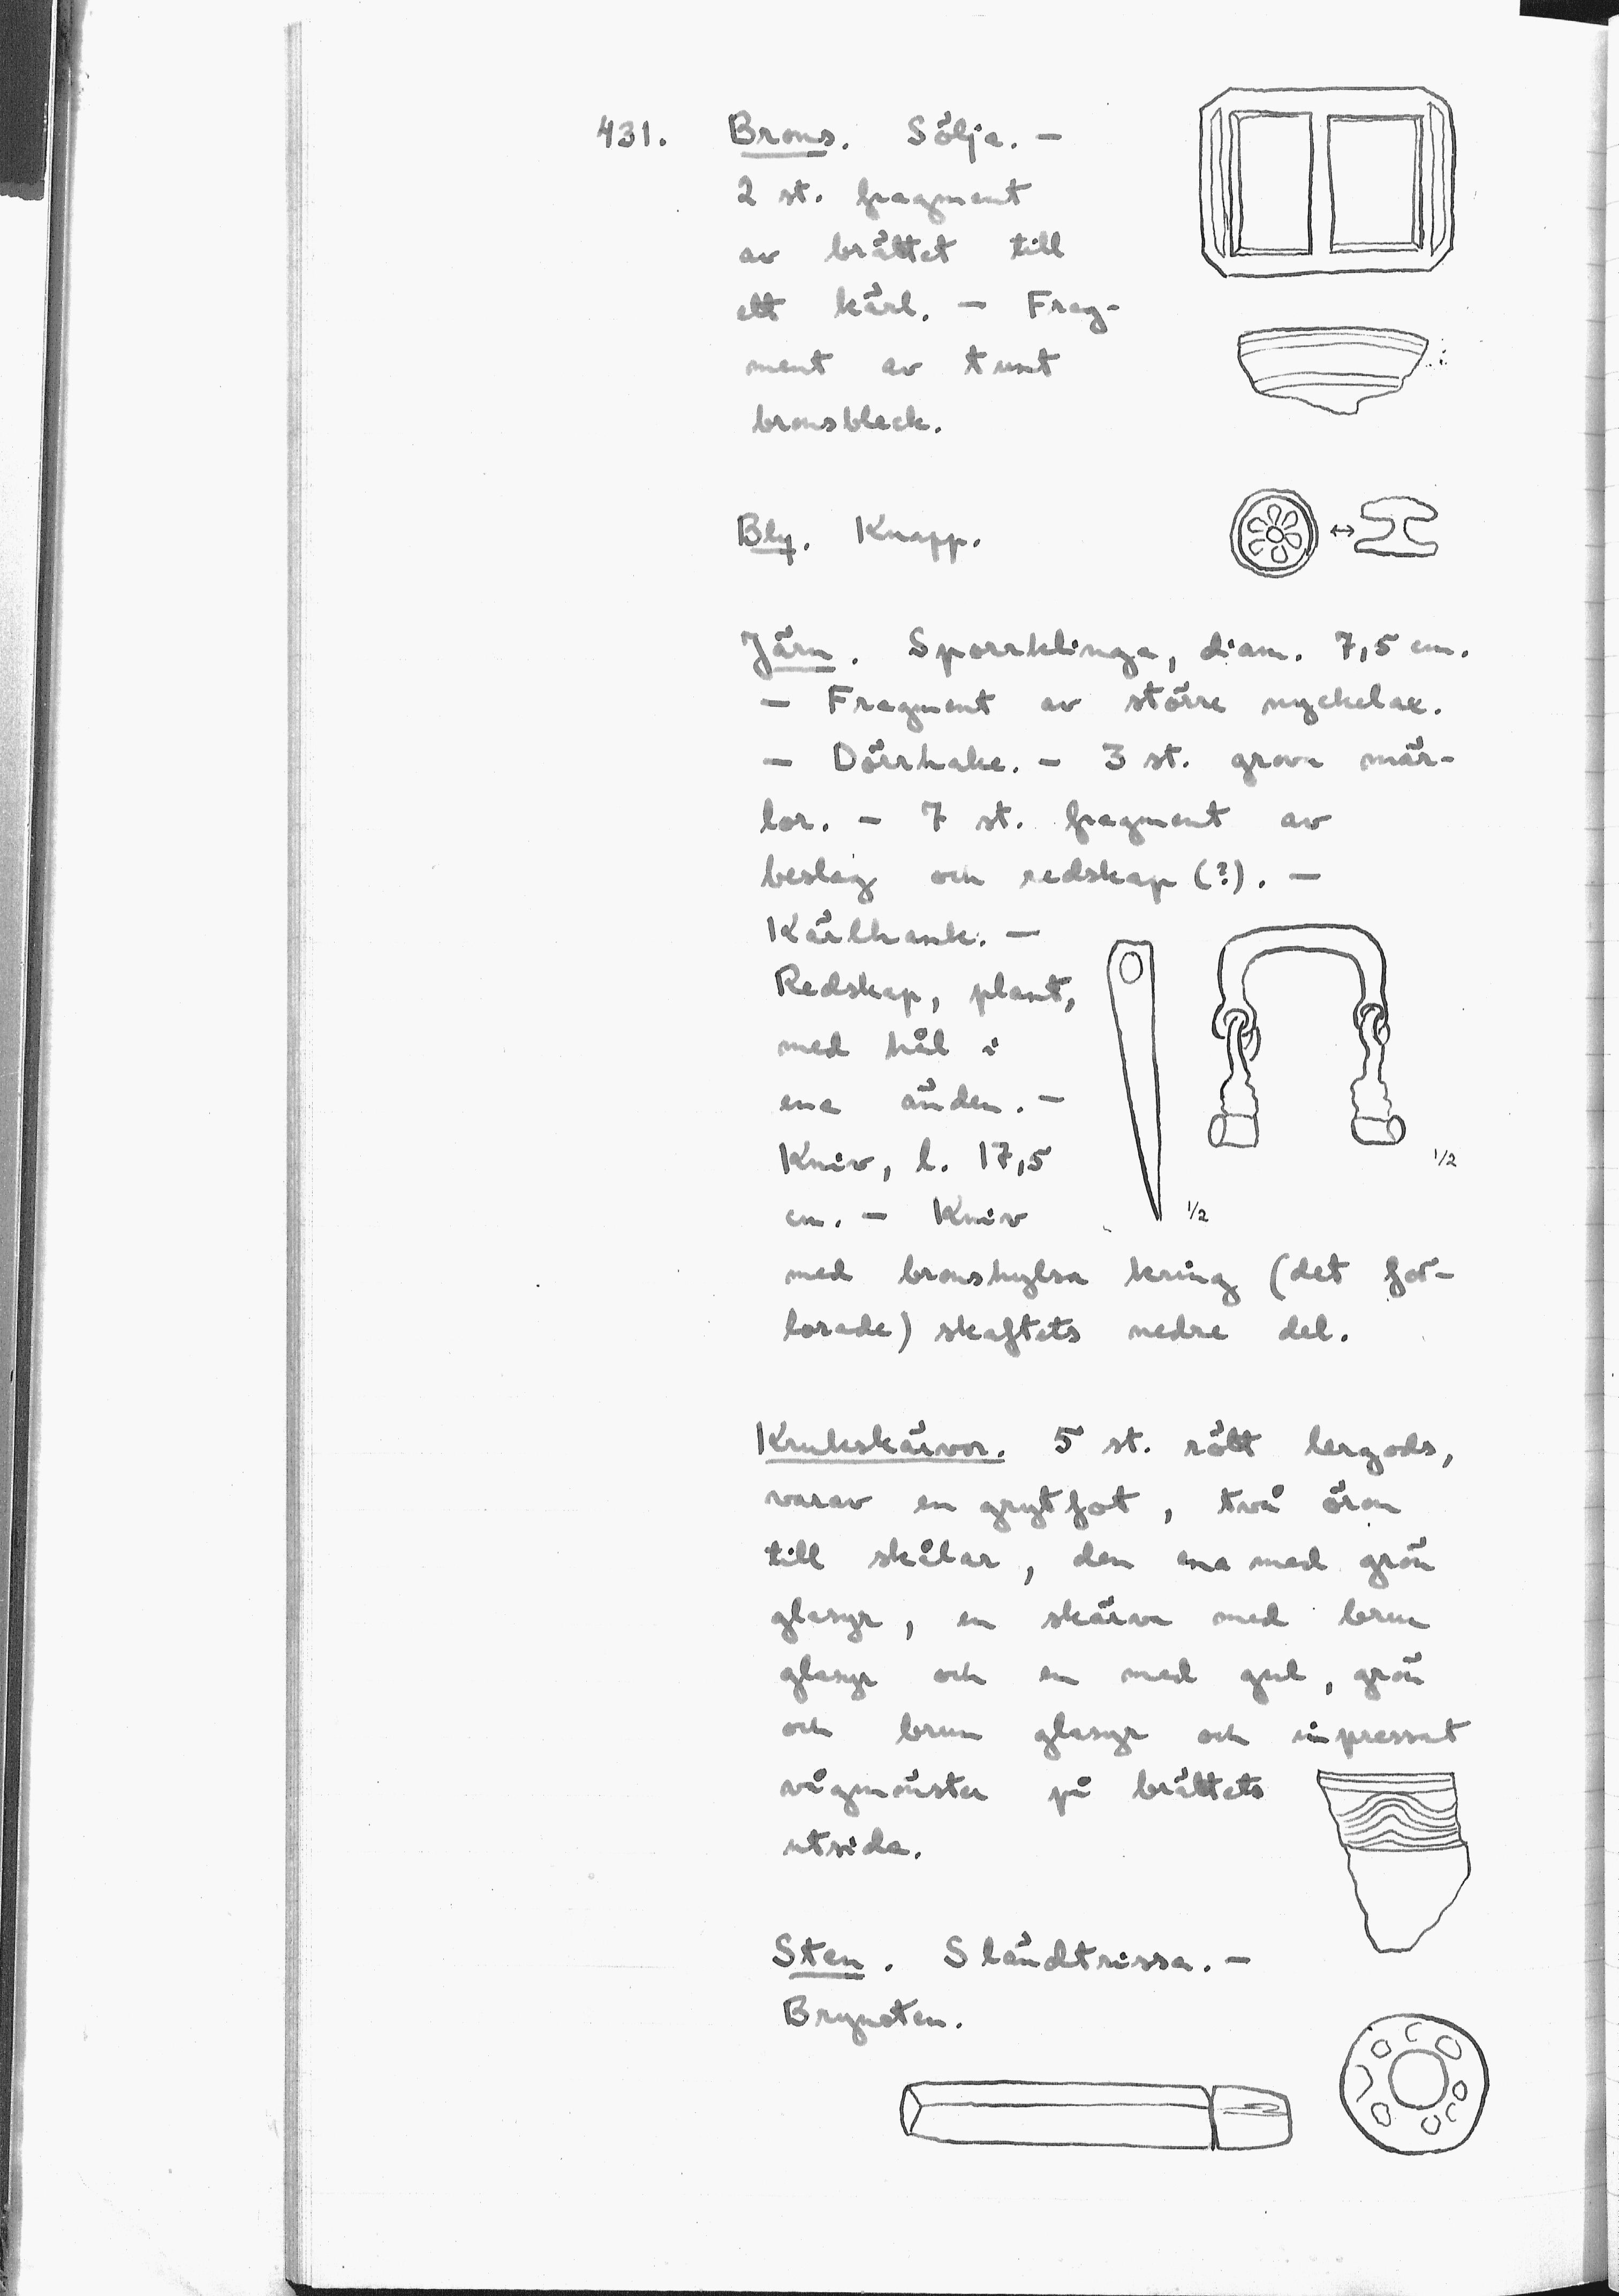 431. Brons. Sölja. —
2 st. fragment
av brättet till
ett kärl. — Frag-
ment av tunt
bronsbleck.
Bly. Knapp.
Järn. Sporrklinga, diam. 7,5 cm.
— Fragment av större nyckelax.
— Dörrhake. — 3 st. grova mär-
lor. — 7 st. fragment av
beslag och redskap (?). —
Kärlhank. —
Redskap, plant,
med hål i
ena änden. —
Kniv, l. 17,5
cm. — Kniv
1/2
1/2
med bronshylsa kring (det för-
lorade) skaftets nedre del.
Krukskärvor. 5 st. rött lergods,
varav en grytfot, två öron
till skålar, den ena med grön
glasyr, en skärva med brun
glasyr och en med gul, grön
och brun glasyr och inpressat
vågmönster på brättets
utsida.
Sten. Sländtrissa. —
Brynsten.